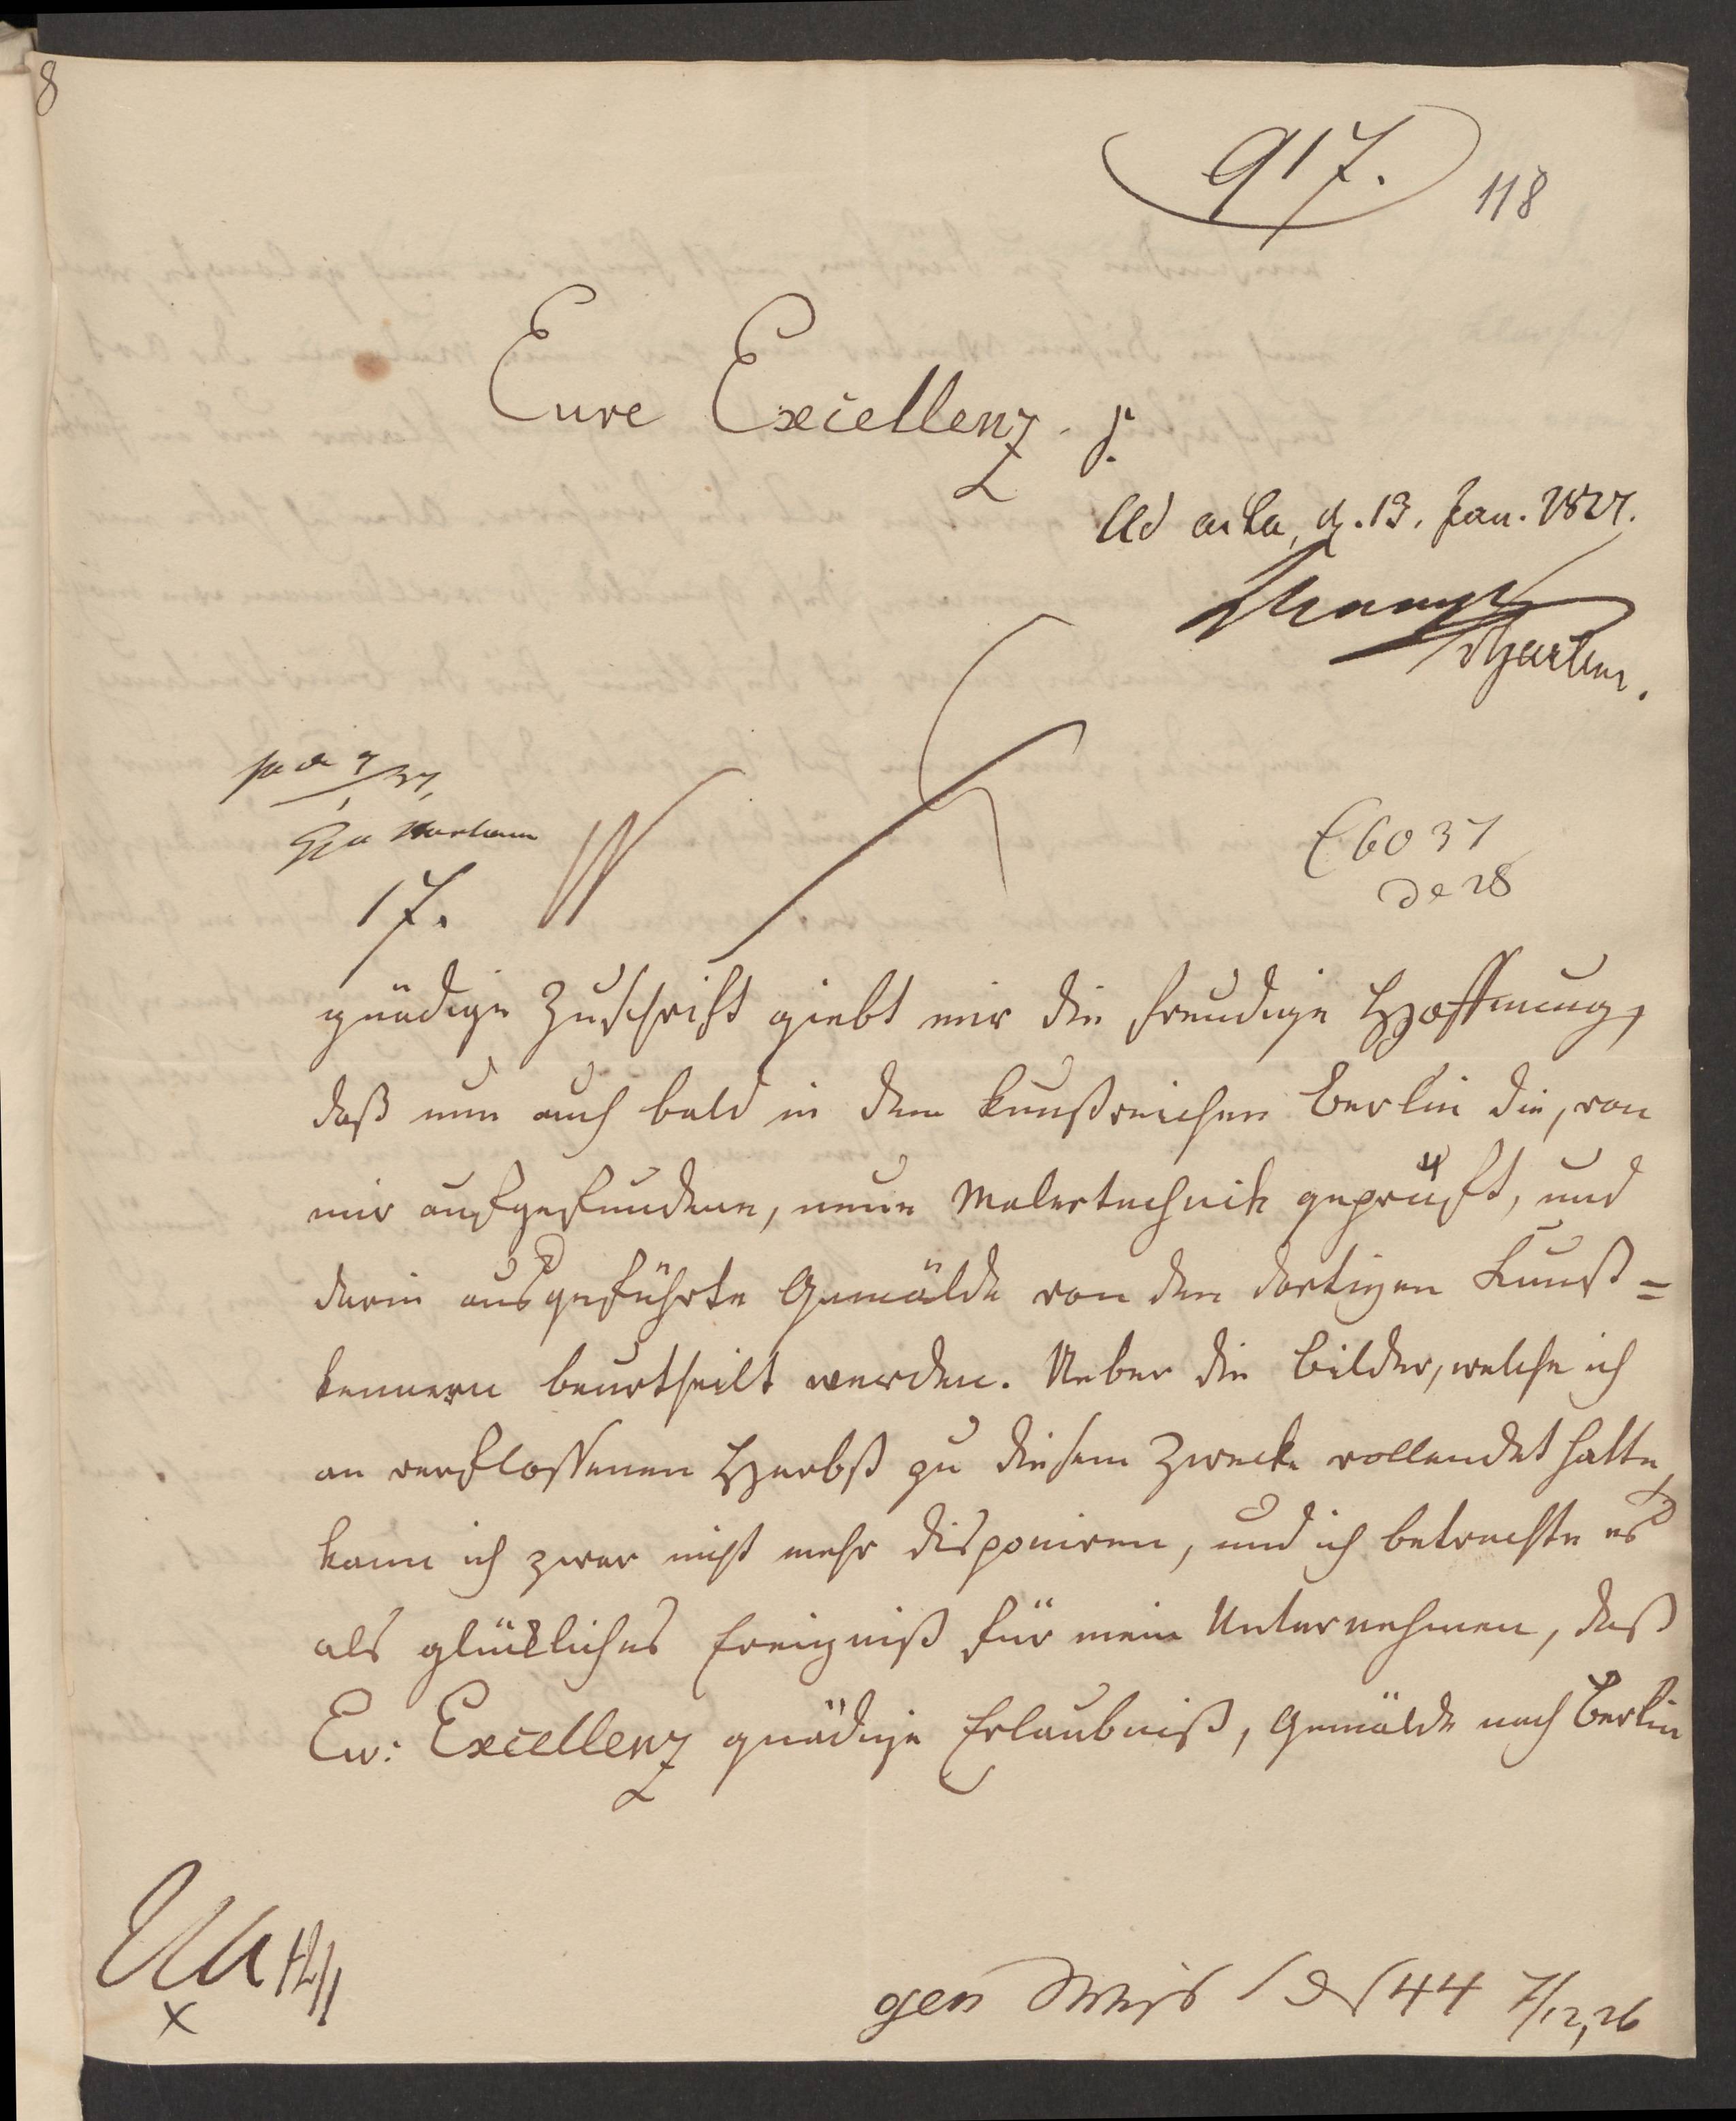 8
917.
118
Eure Excellenz
Ad acta, d. 13. Jan. 1827.
17.
E 6037
de 28
gnädige Zuschrift giebt mir die freudige Hoffnung,
daß nun auch bald in dem kunstreichen Berlin die, von
mir aufgefundene, neue Malertechnik geprüft, und
darin ausgeführte Gemälde von den dortigen Kunst=
kennern beurtheilt werden. Ueber die Bilder, welche ich
im verflossenen Herbst zu diesem Zwecke vollendet hatte,
kann ich zwar nicht mehr disponiren, und ich betrachte es
als glückliches Ereigniß für mein Unternehmen, daß
Ew: Excellenz gnädige Erlaubniß, Gemälde nach Berlin
12/1
x
44 7/12, 26